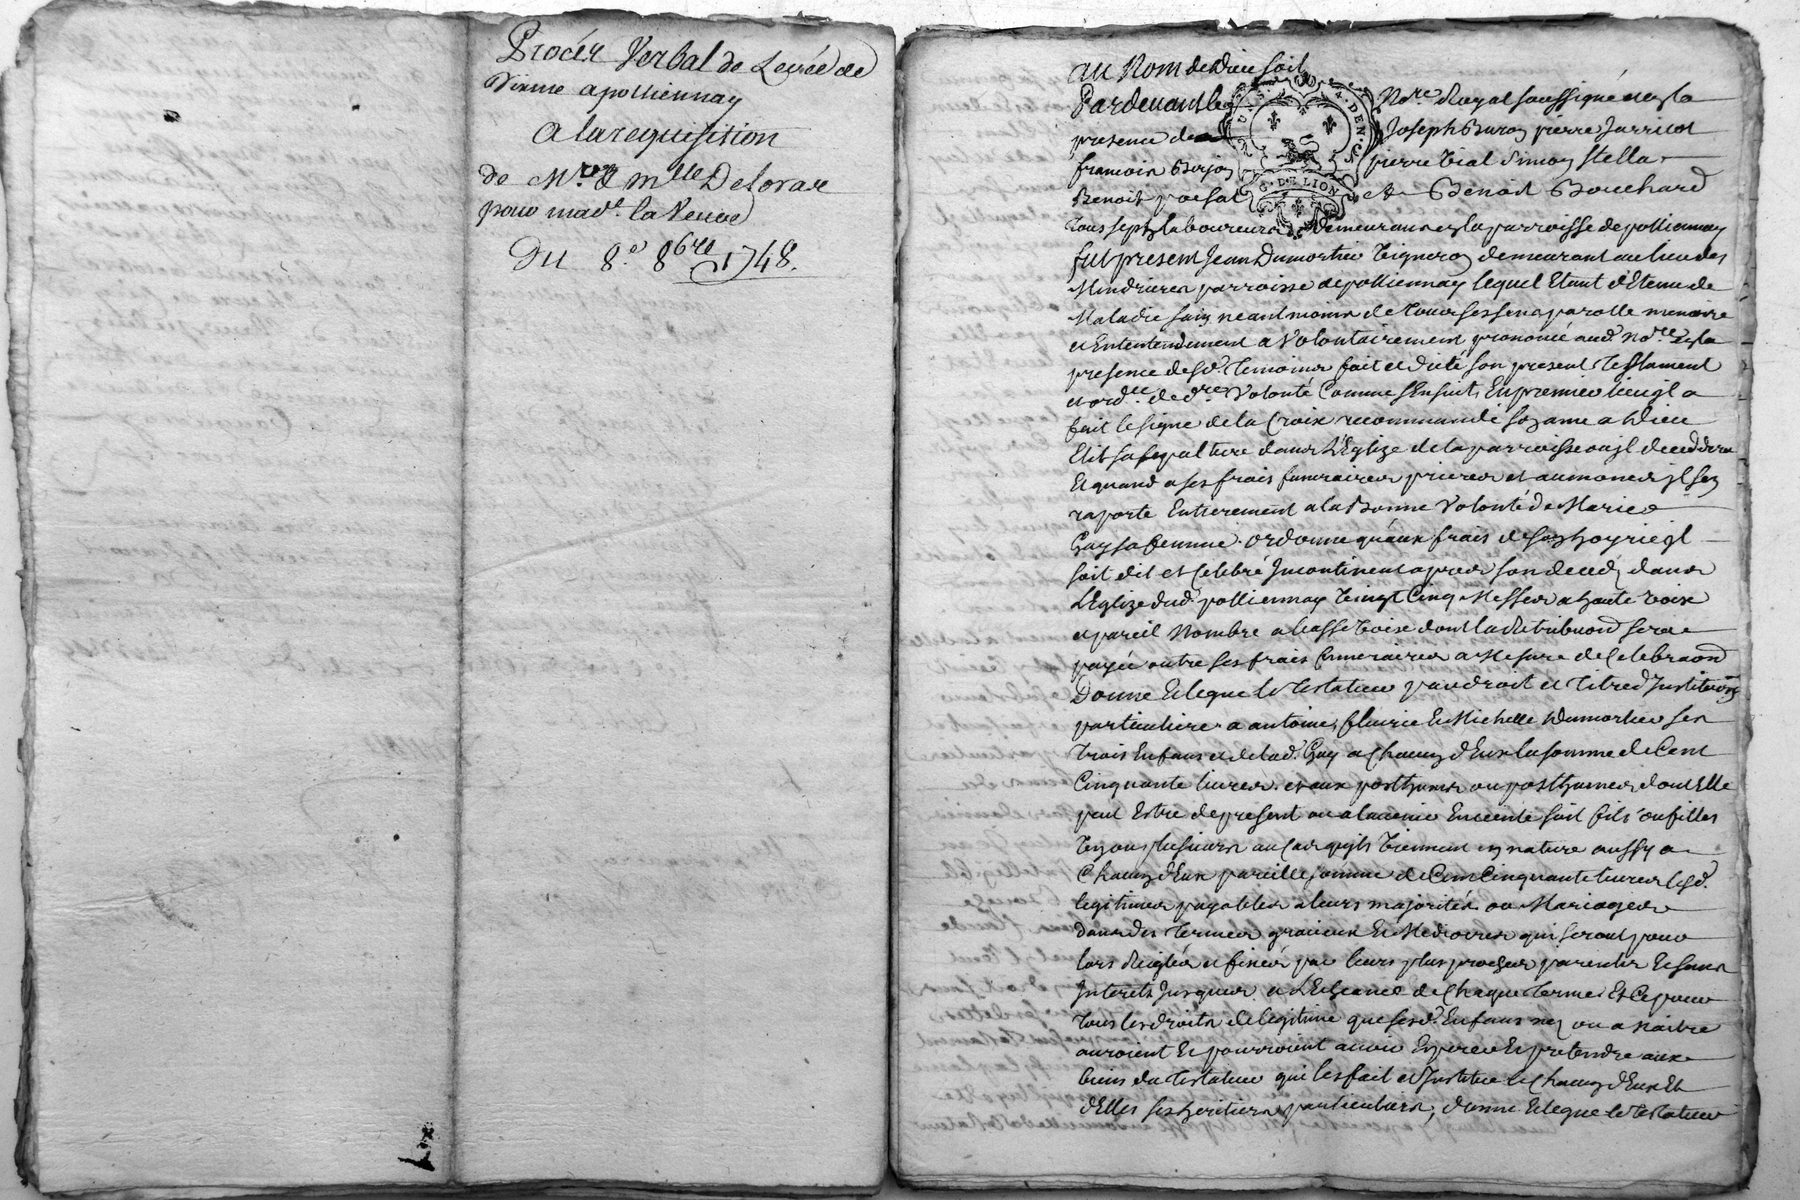 Procés Verbal de Levée de
Dixme a polliennay
A la requisition
de Mrs & Mlle Deloras
pour made. la Veuve
Du 8e. 8bre 1748.
au Nom de Dieu soit
Pardevant le Nore. Royal soussigné et en la
presence de Joseph Buron pierre Jarricot
francois Berjon pierre Vial Simon Stella
Benoit et Benoit Bouchard
Tous sept laboureurs demeurans en la parroisse de polliennay
fut present Jean Dumortier Vigneron demeurant au lieu des
parroisse de polliennay lequel Etant detenu de
Maladie sain neantmoins de tous ses sens parolle memoire
et Entendement a Volontairement prononcé aud. Nore. en la
presence desd. temoins fait et dicté son present testament
et ordce. de dre. Volonté Comme s'Ensuit, En premier lieu il a
fait le signe de la Croix recommandé son ame a Dieu
Elit sa sepulture dans L'Eglize de la parroisse ou il deceddera
Et quand a ses frais funeraires prieres et aumones il s'en
raporte Entierement a la Bonne Volonté de Marie
Gay sa femme. ordonne qu'aux frais de son hoyrie il
soit dit et Celebré Incontinent apres son decedz dans
L'Eglize dud. polliennay Vingt Cinq Messes a haute voix
et pareil Nombre a basse voix dont la retribuond sera
payée outre ses frais funeraires a Mesure de Celebraond
Donne Et legue le Testateur par droit et titre d'Institution
particuliere a antoine, fleurie Et Michelle Dumortier ses
trois Enfans et de lad. Gay a Chacun d'Eux la somme de Cent
Cinquante livres. et aux posthumes ou posthumes dont Elle
peut Estre de present ou a l'avenir Enceinte soit fils ou filles
un ou plusieurs au Cas qu'ils viennent en nature aussy a
Chacun d'Eux pareille somme de Cent Cinquante livres lesd.
legitimes payables a leurs majorités ou Mariages
dans des termes gracieux Et Mediocres qui seront pour
lors Reglés et fixés par leurs plus proches parents Et sans
Interets Jusques a L'Echeance de Chaque terme. Et Ce pour
tous les droits de legitime que sesd. Enfans nez ou a Naitre
auroient Et pourroient avoir Esperer Et pretendre aux
biens du Testateur qui les fait et Institue Chacun d'Eux Et
d'Elles ses heritiers particuliers, donne Et legue le testateur
G. DE LION